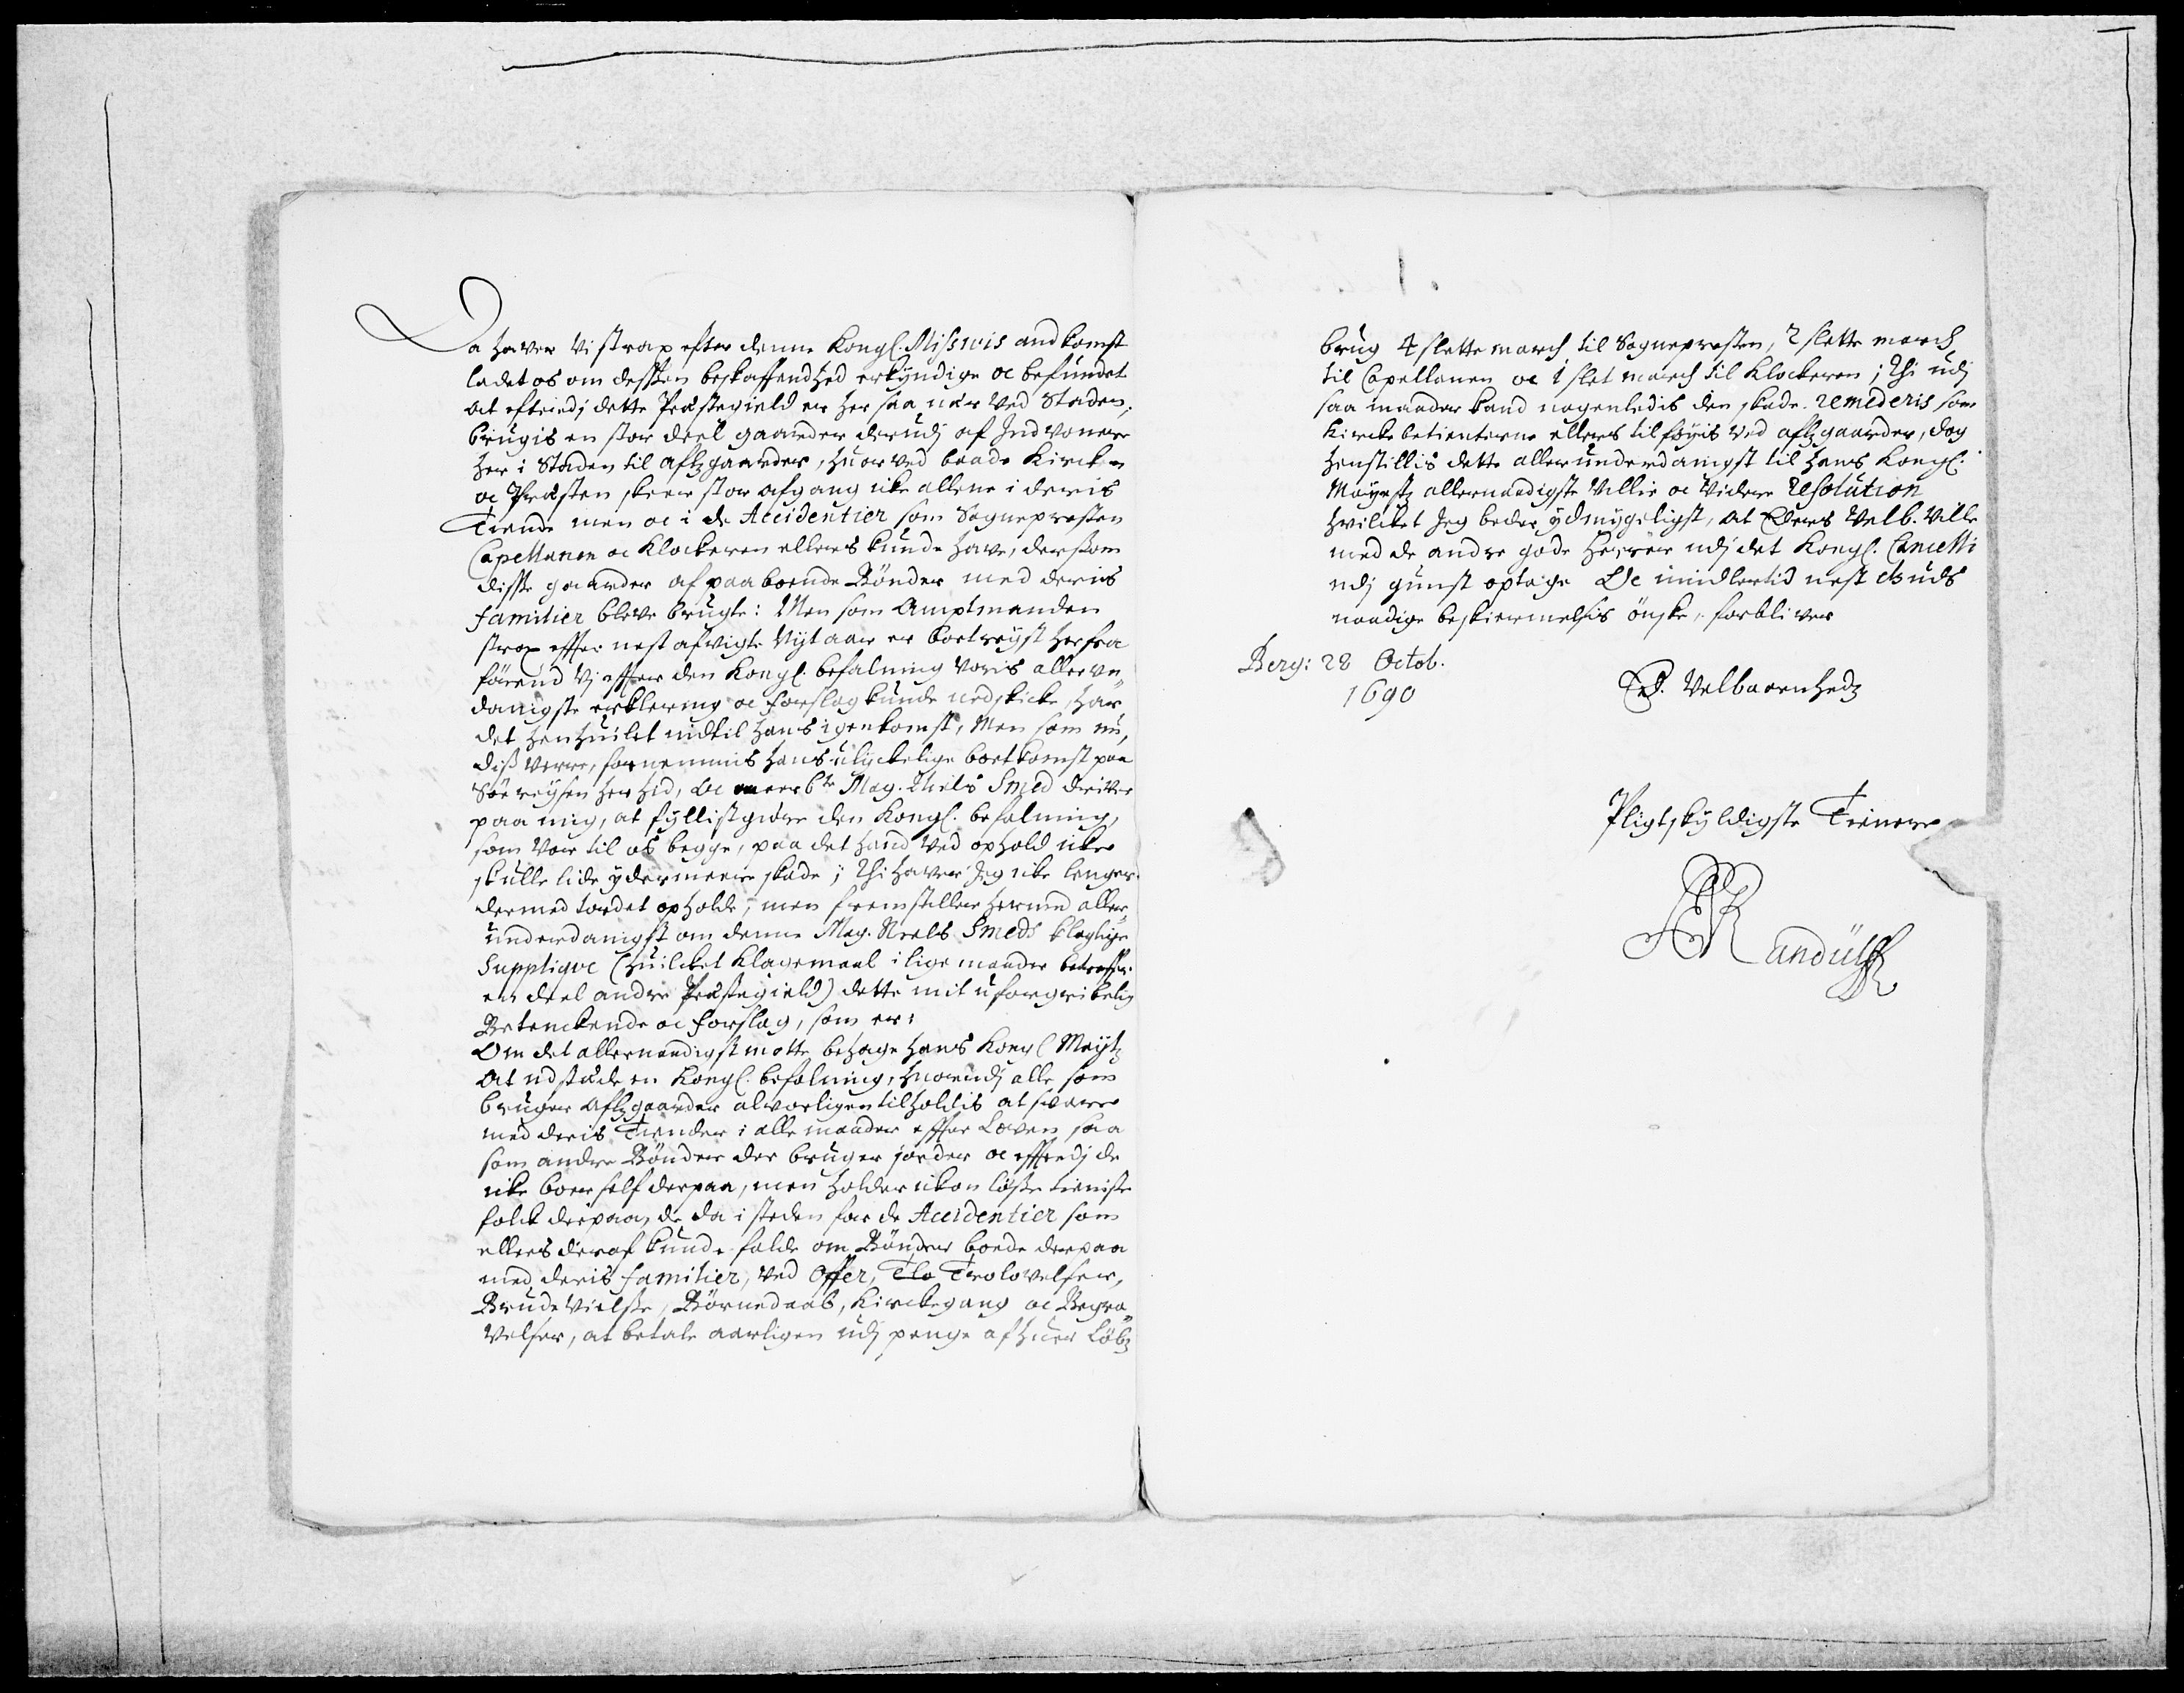 Da haver Vi strax efter denne Kongl. Missivis andkomst
ladet os om dessen beskaffendhed erkyndige oc befundet
at eftersdj dette Præstegield er her saa nær ved Staden,
brugis en stor deel gaarder derudj af Indvonere
her i Staden til aflzgaarder, huorved baade Kircken
oc Præsten skeer stor afgang icke allene i deris
Tiende men oc i de Accidentier som Sognepresten
Capellanen oc Klockeren ellers kunde have, dersom
disse gaarder af paaboende Bønder med deris
familier bleve brugte: Men som Amptmanden
strax effter nest afvigte Nytaar er bortreyst herfra
førend Vj effter den Kongl. befalning voris allerun„
danigste erklering oc forslag kunde nedskicke, har
det henhvilet indtil hans igenkomst, Men som nu,
diss verre, fornemmis hans ulyckelige bortkomst paa
Søereysen her hid, oc Mag. Niels Smed driver
paa mig, at fyllistgiøre den Kongl. befalning,
som var til os begge, paa det hand ved ophold icke
skulle lide ydermeere skade; Thi haver Jeg icke lenger
dermed tordet opholde, men fremstiller hermed aller„
underdanigst om denne Mag. Niels Smeds klaglige
Supplique (huilcket Klagemaal i lige maader betreffer
en deel andre Præstegield) dette mit uforgribelig
Betenckende oc forslag, som er:
Om det allernaadigst motte behage hans Kongl Mayt
at udstæde en Kongl. befalning, huorudj alle som
bruger aflzgaarder alvorligen tilholdis at svare
med deris Tiender i alle maader effter Loven saa
som andre Bønder der bruger jorder oc effterdj de
icke boer self derpaa, men holder ickon løsse tieniste
folck derpaa, de da i steden for de Accidentier som
ellers deraf kunde falde om Bønder boede derpaa
med deris familier, ved Offer, Tlo Trolovelser,
Brudevielse, Børnedaab, Kirckegang oc Begra„
velser, at betale aarligen udj penge af huer Løbz
brug 4 slette march til Sognepresten, 2 slette march
til Capellanen oc 1 slet march til Klockeren; Thi udj
saa maader kand nogenledis den skade remederis som
Kirckebetienterne ellers tilføyis ved aflzgaarder, dog
henstillis dette allerunderdanigst til hans Kongl.
Mayestz allernaadigste Villie oc Videre Resolution
hvilcket Jeg beder ydmygeligst, at Eders Velb. Ville
med de andre gode Herrer udj det Kongl. Cancelli
udj gunst optage Oc imidlertid nest Guds
naadige beskiermelsis ønske, forbliver
Berg: 28 Octob.
1690
Ed. Velbaarenhedz
Pligtskyldigste Tienere
Randulff